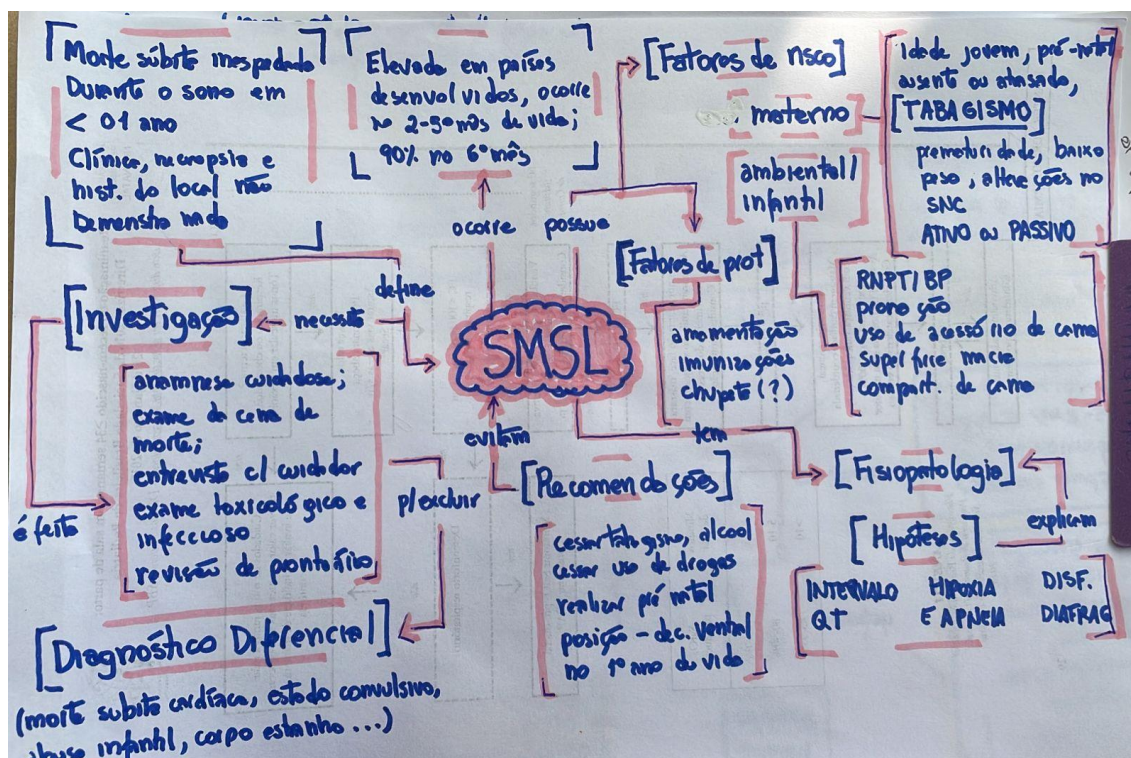 [Morte súbita inesperada
Durante o sono em
< 01 ano
Clínica, necropsia e
hist. do local não
Demonstra nada]
[Elevada em países
desenvolvidos, ocorre
no 2-5º mês de vida;
90% no 6º mês]
[Fatores de risco]
materno
ambiental/
infantil
Idade jovem, pré-natal
ausente ou atrasado,
[TABAGISMO]
prematuridade, baixo
peso, alterações no
SNC
ATIVO ou PASSIVO
ocorre
possue
[Fatores de prot]
RNPT/BP
prona ção
uso de acessório de cama
superfície macia
compart. de cama
define
[Investigação]
necessita
SMSL
amamentação
imunizações
chupeta (?)
anamnese cuidadosa;
exame da cena de
morte;
entrevista c/ cuidador
exame toxicológico e
infeccioso
revisão de prontuário
é feita
p/excluir
evitam
tem
[Recomendações]
[Fisiopatologia]
cessar tabagismo, alcool
cessar uso de drogas
realizar pré natal
posição - dec. ventral
no 1º ano de vida
[Hipóteses]
explicam
INTERVALO QT
HIPOXIA E APNEIA
DISF. DIAFRAG
[Diagnóstico Diferencial]
(morte subita cardíaca, estado convulsivo,
abuso infantil, corpo estranho ...)